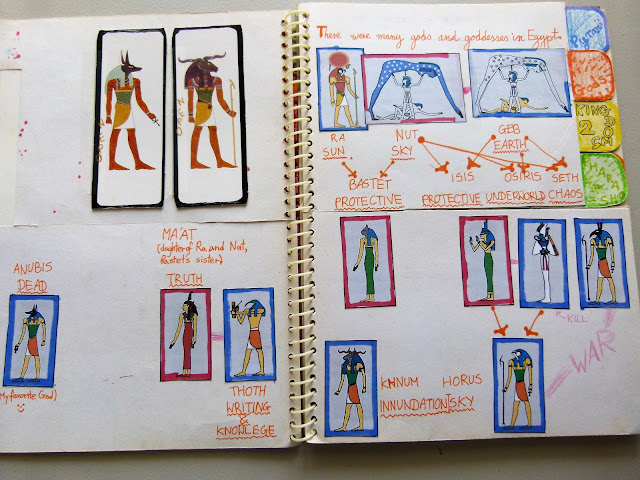 There were many gods and goddesses in Egypt.
RA
SUN
NUT
SKY
GEB
EARTH
BASTET
PROTECTIVE
ISIS
PROTECTIVE
OSIRIS
UNDERWORLD
SETH
CHAOS
KILL
WAR
KHNUM
INNUNDATION
HORUS
SKY
ANUBIS
DEAD
(My favorite God)
MA'AT
(daughter of Ra and Nut,
Bastet's sister)
TRUTH
THOTH
WRITING
&
KNOWLEGE
KING
2
DOM